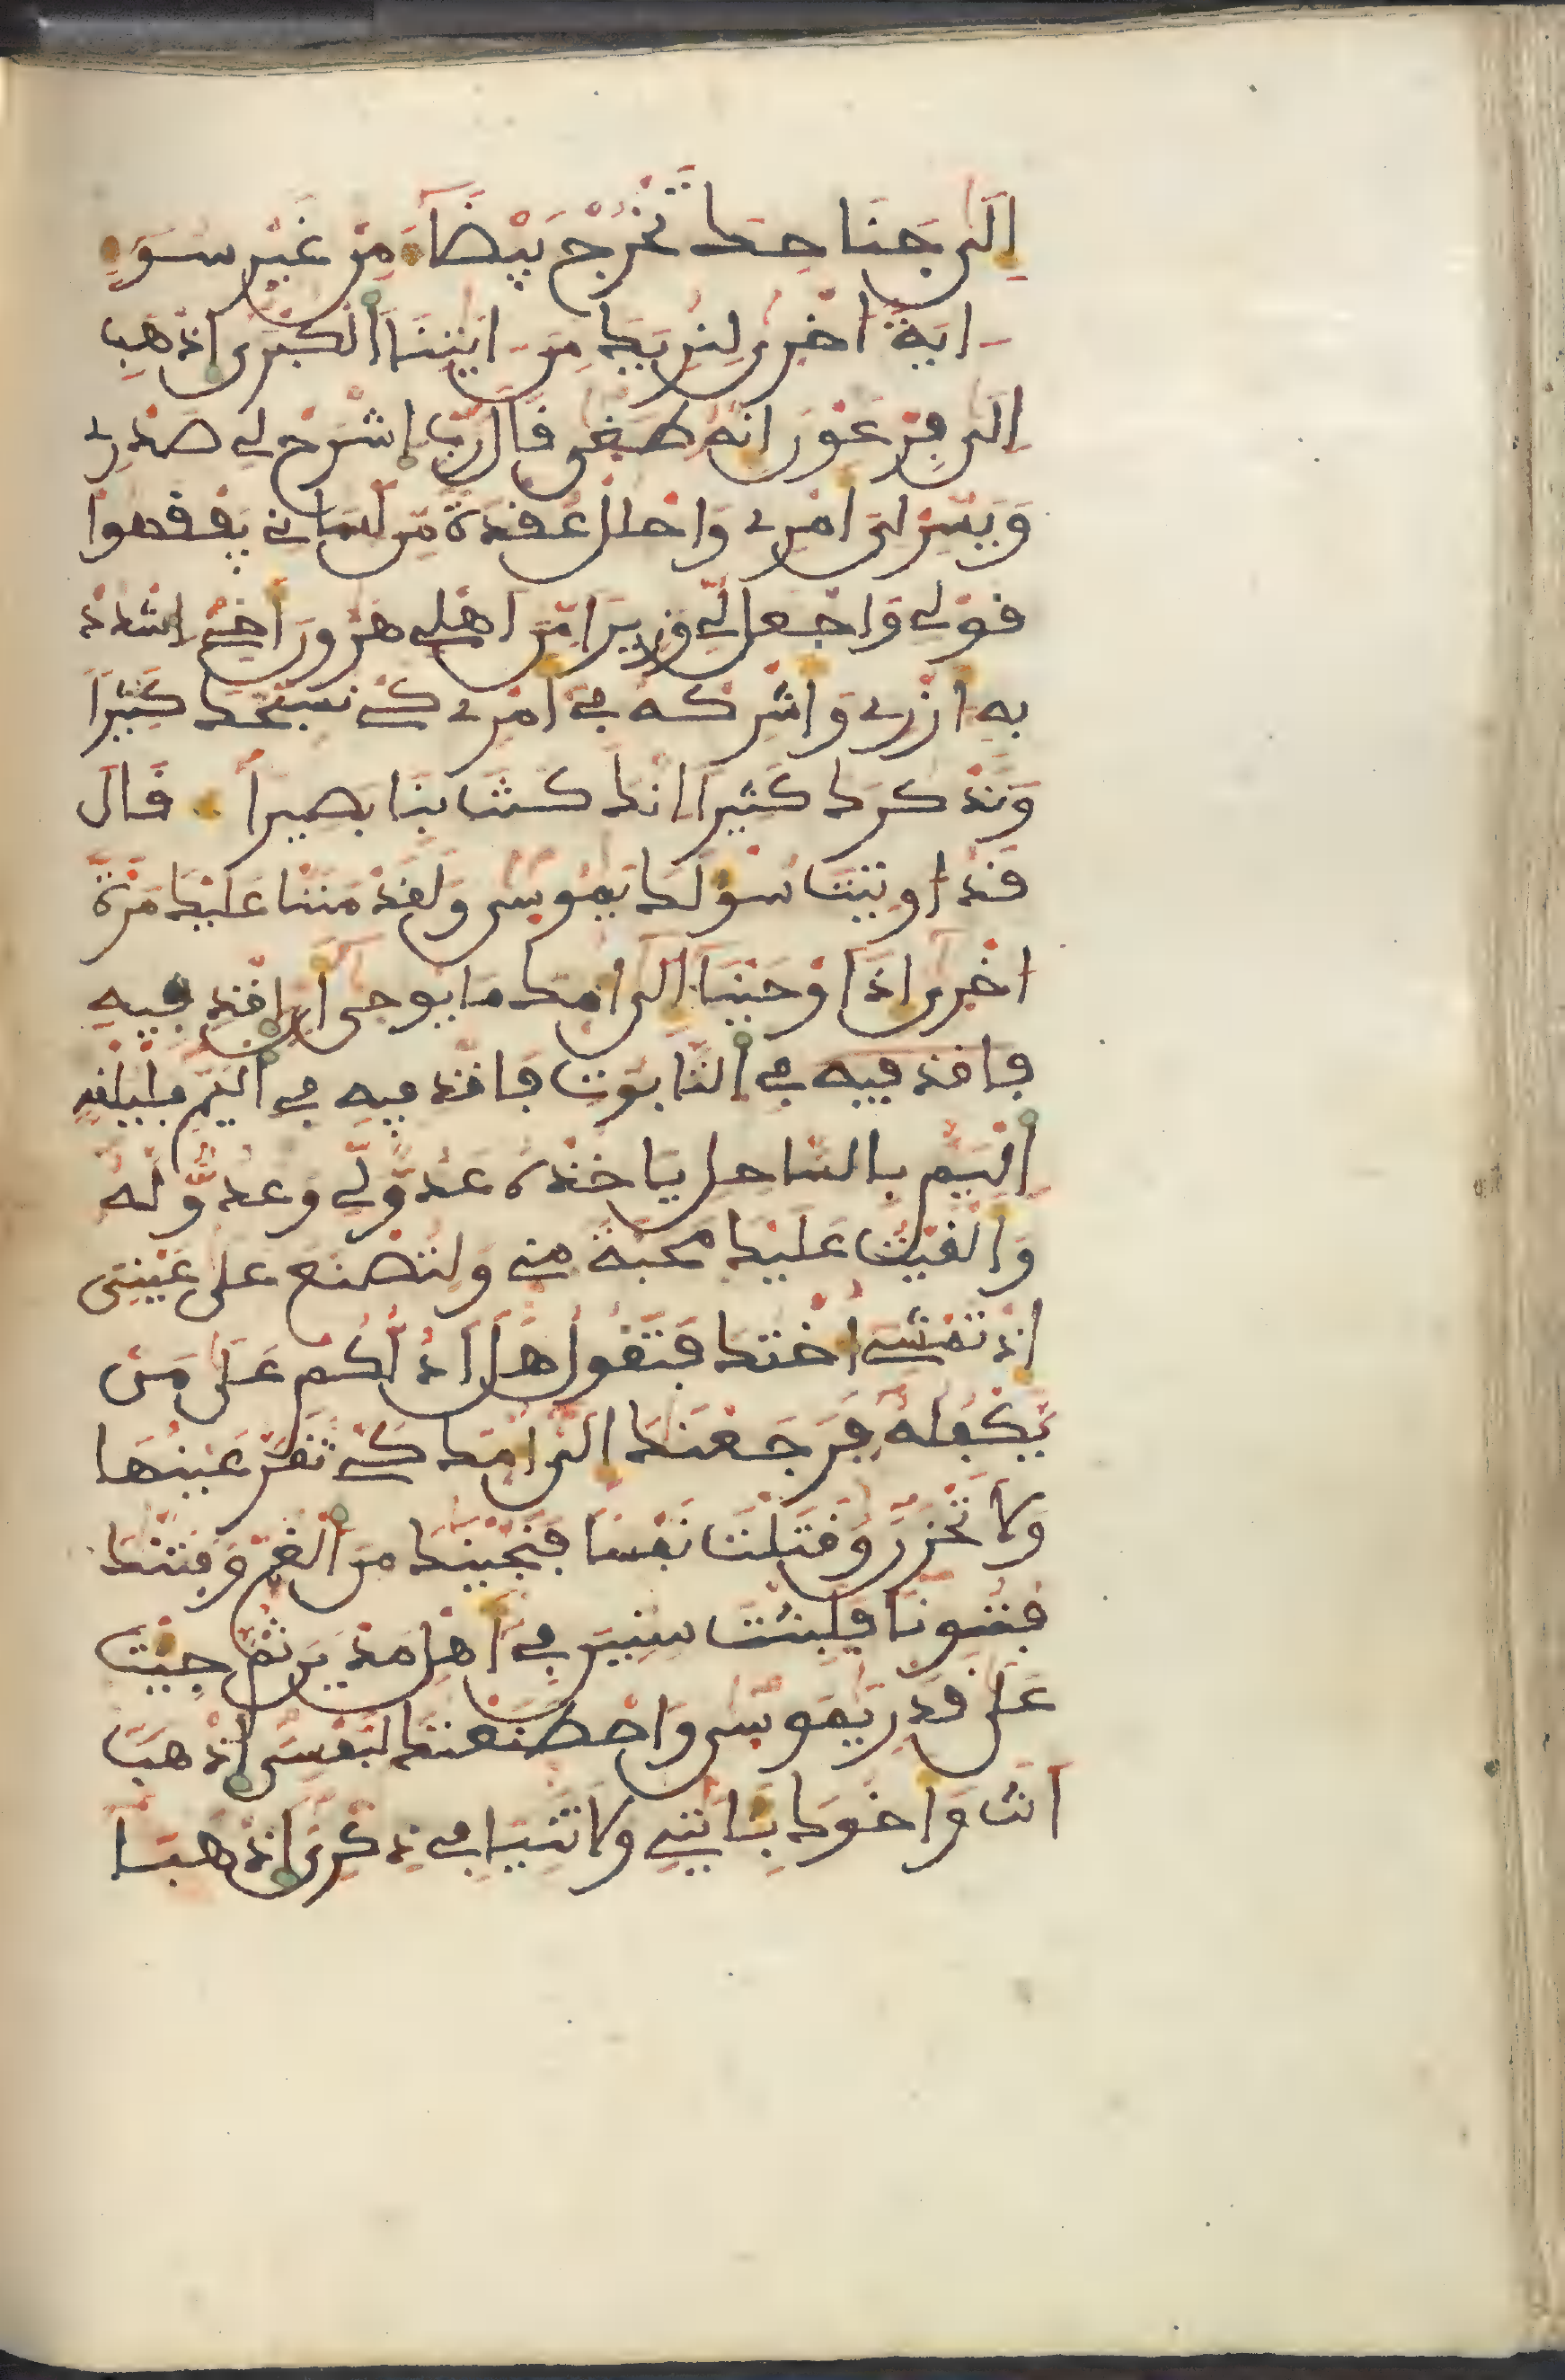 إلى جناحك تخرج بيضاء من غير سوء
اية اخرى لنريك من ايتنا الكبرى اذهب
الى فرعون انه طغى قال رب اشرح لي صدري
ويسر لى امري واحلل عقدة من لساني يفقهوا
قولي واجعل لي وزيرا من اهلي هرون اخي اشدد
به ازري واشركه في امري كي نسبحك كثيرا
ونذكرك كثيرا انك كنت بنا بصيرا قال
قد اوتيت سؤلك يموسى ولقد مننا عليك مرة
اخرى اذ اوحينا الى امك ما يوحى ان اقذفيه
فاقذفيه في التابوت فاقذفيه في اليم فليلقه
اليم بالساحل ياخذه عدو لي وعدو له
والقيت عليك محبة مني ولتصنع على عينى
اذ تمشي اختك فتقول هل ادلكم على من
يكفله فرجعنك الى امك كي تقر عينها
ولا تحزن وقتلت نفسا فنجينك من الغم وفتنك
فتونا فلبثت سنين في اهل مدين ثم جيت
على قدر يموسى واصطنعتك لنفسى اذهب
انت واخوك بايتي ولا تنيا في ذكرى اذهبا